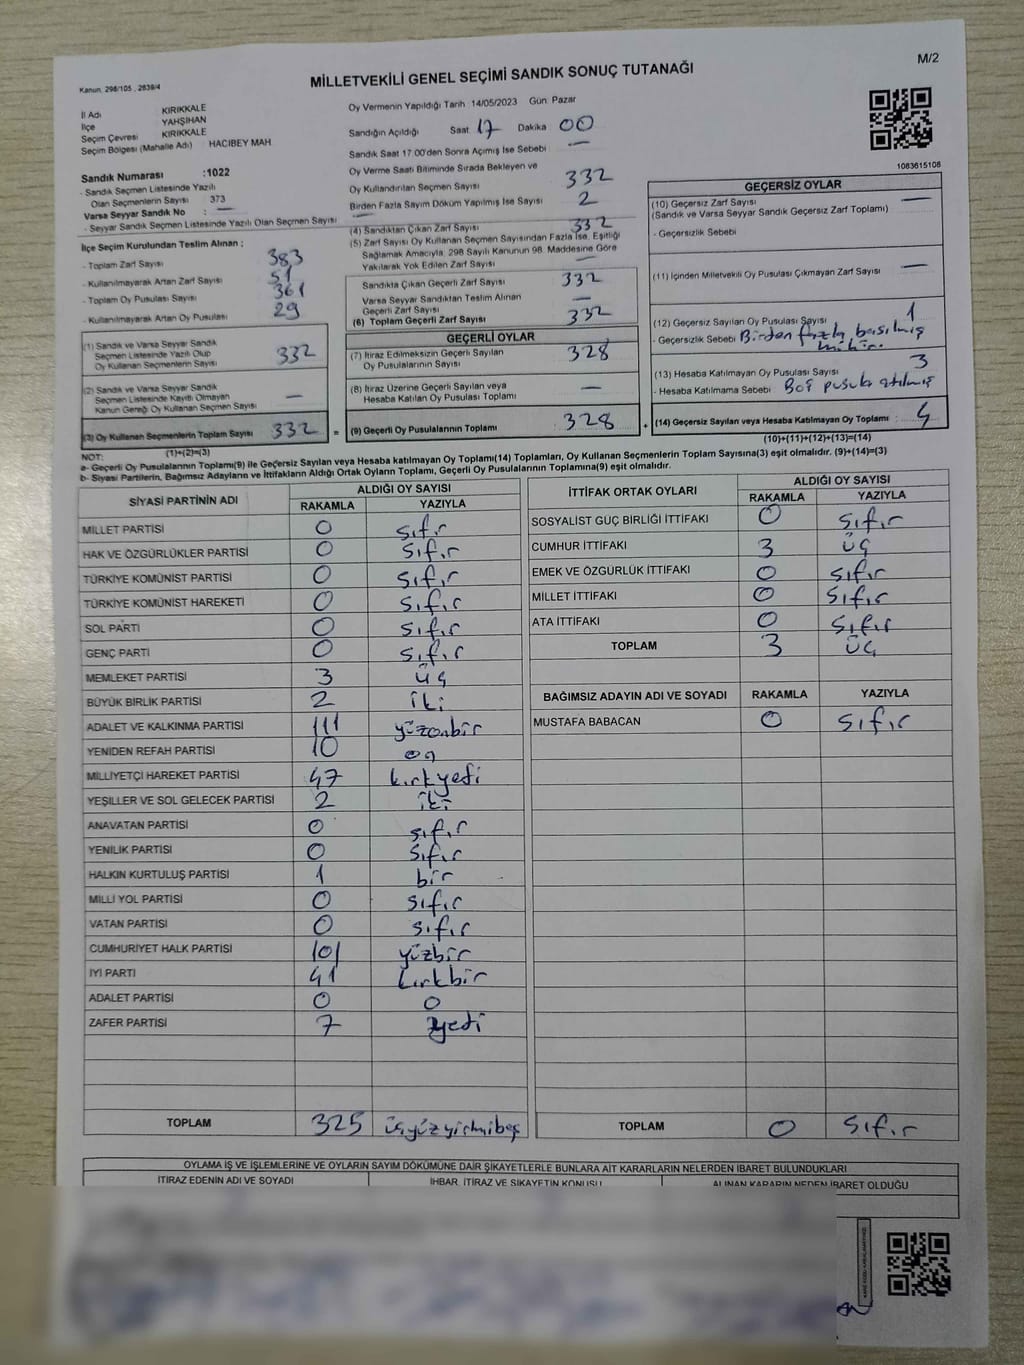 M/2
Kanun, 298/105, 2839/4
MİLLETVEKİLİ GENEL SEÇİMİ SANDIK SONUÇ TUTANAĞI
İl Adı KIRIKKALE
İlçe YAHŞİHAN
Seçim Çevresi KIRIKKALE
Seçim Bölgesi (Mahalle Adı) HACIBEY MAH.
Sandık Numarası :1022
- Sandık Seçmen Listesinde Yazılı
Olan Seçmenlerin Sayısı 373
Varsa Seyyar Sandık No : —
- Seyyar Sandık Seçmen Listesinde Yazılı Olan Seçmen Sayısı —
İlçe Seçim Kurulundan Teslim Alınan ;
- Toplam Zarf Sayısı 383
- Kullanılmayarak Artan Zarf Sayısı 51
- Toplam Oy Pusulası Sayısı 361
- Kullanılmayarak Artan Oy Pusulası 29
(1) Sandık ve Varsa Seyyar Sandık
Seçmen Listesinde Yazılı Olup
Oy Kullanan Seçmenlerin Sayısı 332
(2) Sandık ve Varsa Seyyar Sandık
Seçmen Listesinde Kayıtlı Olmayan
Kanun Gereği Oy Kullanan Seçmen Sayısı —
(3) Oy Kullanan Seçmenlerin Toplam Sayısı 332 =
(1)+(2)=(3)
Oy Vermenin Yapıldığı Tarih 14/05/2023 Gün: Pazar
Sandığın Açıldığı Saat 17 Dakika 00
Sandık Saat 17:00'den Sonra Açımış İse Sebebi —
Oy Verme Saati Bitiminde Sırada Bekleyen ve
Oy Kullandırılan Seçmen Sayısı 332
Birden Fazla Sayım Döküm Yapılmış İse Sayısı 2
(4) Sandıktan Çıkan Zarf Sayısı 332
(5) Zarf Sayısı Oy Kullanan Seçmen Sayısından Fazla İse, Eşitliği
Sağlamak Amacıyla, 298 Sayılı Kanunun 98. Maddesine Göre
Yakılarak Yok Edilen Zarf Sayısı —
Sandıkta Çıkan Geçerli Zarf Sayısı 332
Varsa Seyyar Sandıktan Teslim Alınan
Geçerli Zarf Sayısı —
(6) Toplam Geçerli Zarf Sayısı 332
GEÇERLİ OYLAR
(7) İtiraz Edilmeksizin Geçerli Sayılan
Oy Pusulalarının Sayısı 328
(8) İtiraz Üzerine Geçerli Sayılan veya
Hesaba Katılan Oy Pusulası Toplamı —
(9) Geçerli Oy Pusulalarının Toplamı 328 +
1083615108
GEÇERSİZ OYLAR
(10) Geçersiz Zarf Sayısı —
(Sandık ve Varsa Seyyar Sandık Geçersiz Zarf Toplamı)
- Geçersizlik Sebebi
(11) İçinden Milletvekili Oy Pusulası Çıkmayan Zarf Sayısı —
(12) Geçersiz Sayılan Oy Pusulası Sayısı 1
- Geçersizlik Sebebi Birden fazla basılmış
mühür.
(13) Hesaba Katılmayan Oy Pusulası Sayısı 3
- Hesaba Katılmama Sebebi : Boş pusula atılmış
(14) Geçersiz Sayılan veya Hesaba Katılmayan Oy Toplamı : 4
(10)+(11)+(12)+(13)=(14)
NOT:
a- Geçerli Oy Pusulalarının Toplamı(9) ile Geçersiz Sayılan veya Hesaba katılmayan Oy Toplamı(14) Toplamları, Oy Kullanan Seçmenlerin Toplam Sayısına(3) eşit olmalıdır. (9)+(14)=(3)
b- Siyasi Partilerin, Bağımsız Adayların ve İttifakların Aldığı Ortak Oyların Toplamı, Geçerli Oy Pusulalarının Toplamına(9) eşit olmalıdır.
SİYASİ PARTİNİN ADI ALDIĞI OY SAYISI
RAKAMLA YAZIYLA
MİLLET PARTİSİ 0 sıfır
HAK VE ÖZGÜRLÜKLER PARTİSİ 0 sıfır
TÜRKİYE KOMÜNİST PARTİSİ 0 sıfır
TÜRKİYE KOMÜNİST HAREKETİ 0 sıfır
SOL PARTİ 0 sıfır
GENÇ PARTİ 0 sıfır
MEMLEKET PARTİSİ 3 üç
BÜYÜK BİRLİK PARTİSİ 2 iki
ADALET VE KALKINMA PARTİSİ 111 yüzonbir
YENİDEN REFAH PARTİSİ 10 on
MİLLİYETÇİ HAREKET PARTİSİ 47 kırkyedi
YEŞİLLER VE SOL GELECEK PARTİSİ 2 iki
ANAVATAN PARTİSİ 0 sıfır
YENİLİK PARTİSİ 0 sıfır
HALKIN KURTULUŞ PARTİSİ 1 bir
MİLLİ YOL PARTİSİ 0 sıfır
VATAN PARTİSİ 0 sıfır
CUMHURİYET HALK PARTİSİ 101 yüzbir
İYİ PARTİ 41 kırkbir
ADALET PARTİSİ 0 0
ZAFER PARTİSİ 7 yedi
TOPLAM 325 üçyüzyirmibeş
İTTİFAK ORTAK OYLARI ALDIĞI OY SAYISI
RAKAMLA YAZIYLA
SOSYALİST GÜÇ BİRLİĞİ İTTİFAKI 0 sıfır
CUMHUR İTTİFAKI 3 üç
EMEK VE ÖZGÜRLÜK İTTİFAKI 0 sıfır
MİLLET İTTİFAKI 0 sıfır
ATA İTTİFAKI 0 sıfır
TOPLAM 3 üç
BAĞIMSIZ ADAYIN ADI VE SOYADI RAKAMLA YAZIYLA
MUSTAFA BABACAN 0 sıfır
TOPLAM 0 sıfır
OYLAMA İŞ VE İŞLEMLERİNE VE OYLARIN SAYIM DÖKÜMÜNE DAİR ŞİKAYETLERLE BUNLARA AİT KARARLARIN NELERDEN İBARET BULUNDUKLARI
İTİRAZ EDENİN ADI VE SOYADI İHBAR, İTİRAZ VE ŞİKAYETİN KONUSU ALINAN KARARIN NEDEN İBARET OLDUĞU